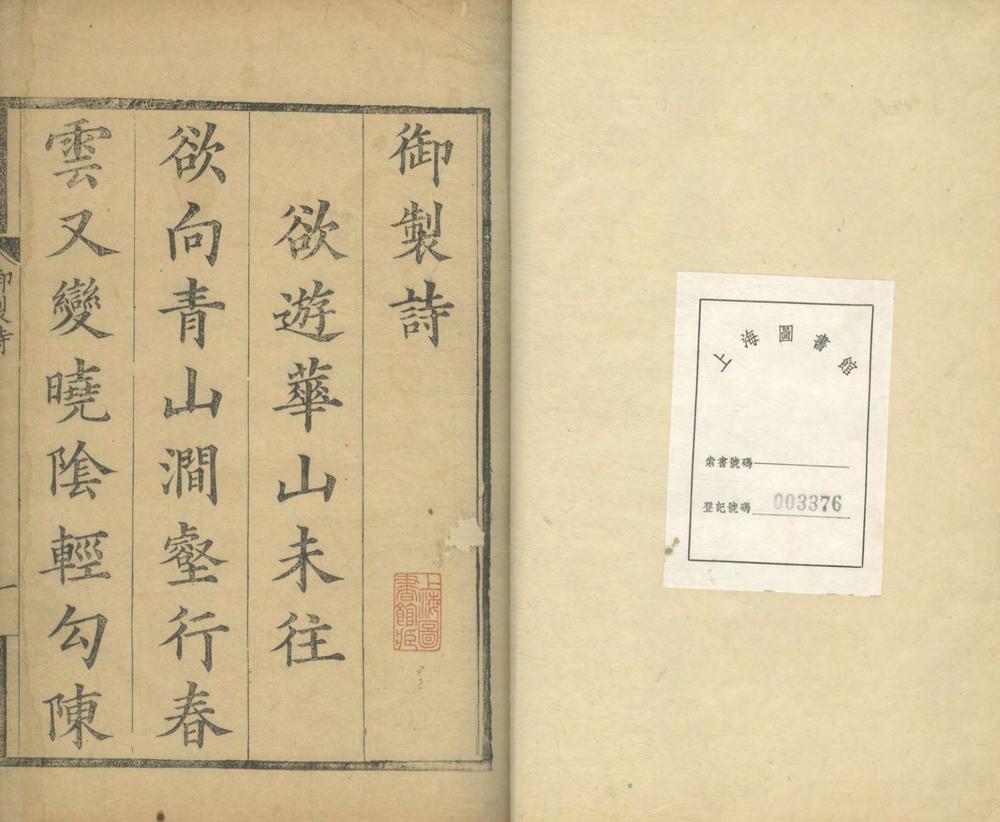 御製詩
欲遊華山未往
欲向青山澗壑行春
雲又變曉陰輕勾陳
御製詩
一
上海圖書館藏
上海圖書館
索書號碼
登記號碼 003376